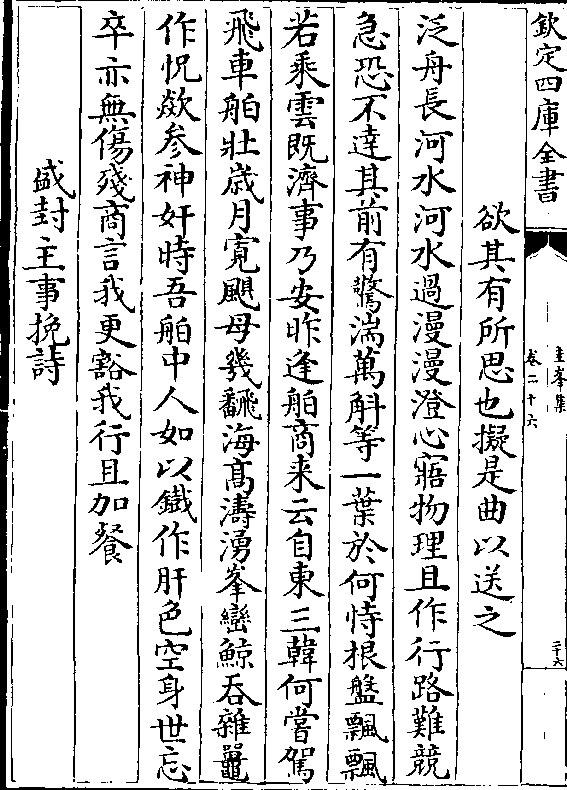 欽定四庫全書
圭峯集
卷二十六
二十六
欲其有所思也擬是曲以送之
泛舟長河水河水過漫漫澄心寤物理且作行路難競
急恐不達其前有驚湍萬斛等一葉於何恃根盤飄飄
若乘雲既濟事乃安昨逢舶商来云自東三韓何嘗駕
飛車舶壯歲月寛颶母幾飜海髙濤湧峯巒鯨吞雜鼉
作怳欻参神奸時吾舶中人如以鐵作肝色空身世忘
卒亦無傷殘商言我更豁我行且加餐
盛封主事挽詩